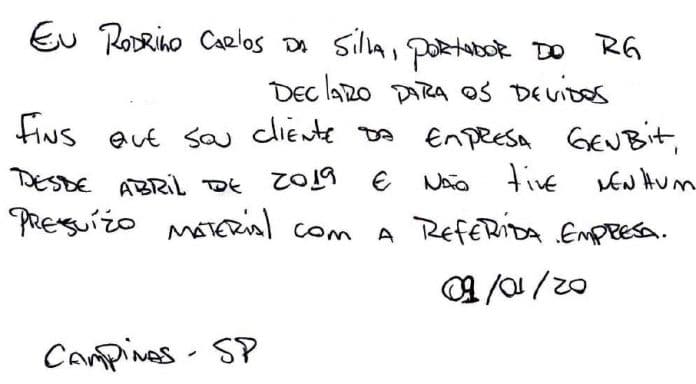 Eu Rodrigo Carlos da Silva, portador do RG
declaro para os devidos
fins que sou cliente da empresa GenBit,
desde abril de 2019 e não tive nenhum
prejuízo material com a referida empresa.
09/01/20
Campinas - SP